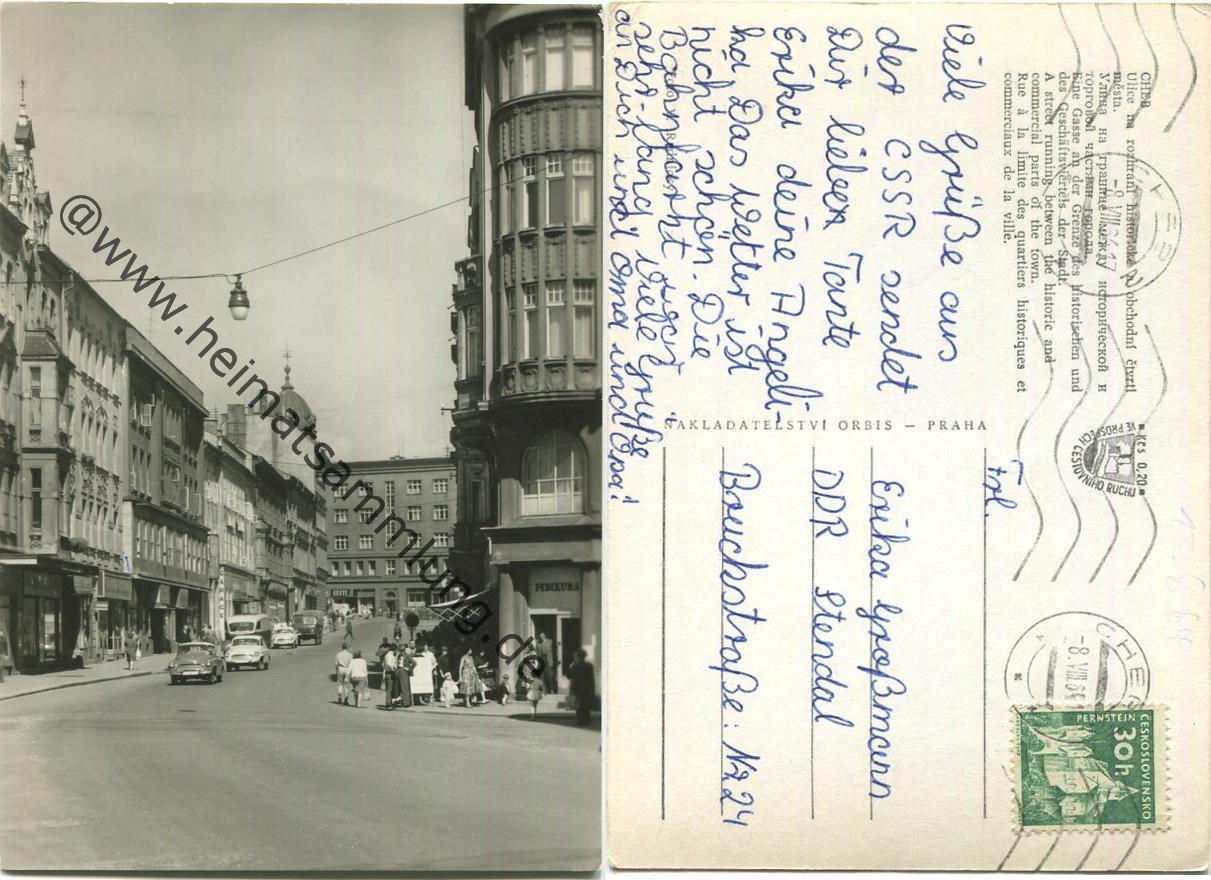 @www.heimatsammlung.de
PEDIKURA
CHEB
Ulice na rozhraní historické a obchodní čtvrti
města.
Улица на границе между исторической и
торговой частями города.
Eine Gasse an der Grenze des historischen und
des Geschäftsviertels der Stadt.
A street running between the historic and
commercial parts of the town.
Rue à la limite des quartiers historiques et
commerciaux de la ville.
Viele Grüße aus
der CSSR sendet
Dir lieben Tante
Erika deine Angeli-
ka Das Wetter ist
nicht schön. Die
Bahnfahrt
sehr lang Viele Grüße
an Dich und Oma und Opa!
NAKLADATELSTVÍ ORBIS – PRAHA
Kčs 0,20
VE PROSPĚCH
CESTOVNÍHO RUCHU
CHEB
-8.VIII
CHEB
-8.VIII
ČESKOSLOVENSKO
30h
PERNŠTEJN
Frl.
Erika Großmann
DDR Stendal
Bruchstraße: Nr 24